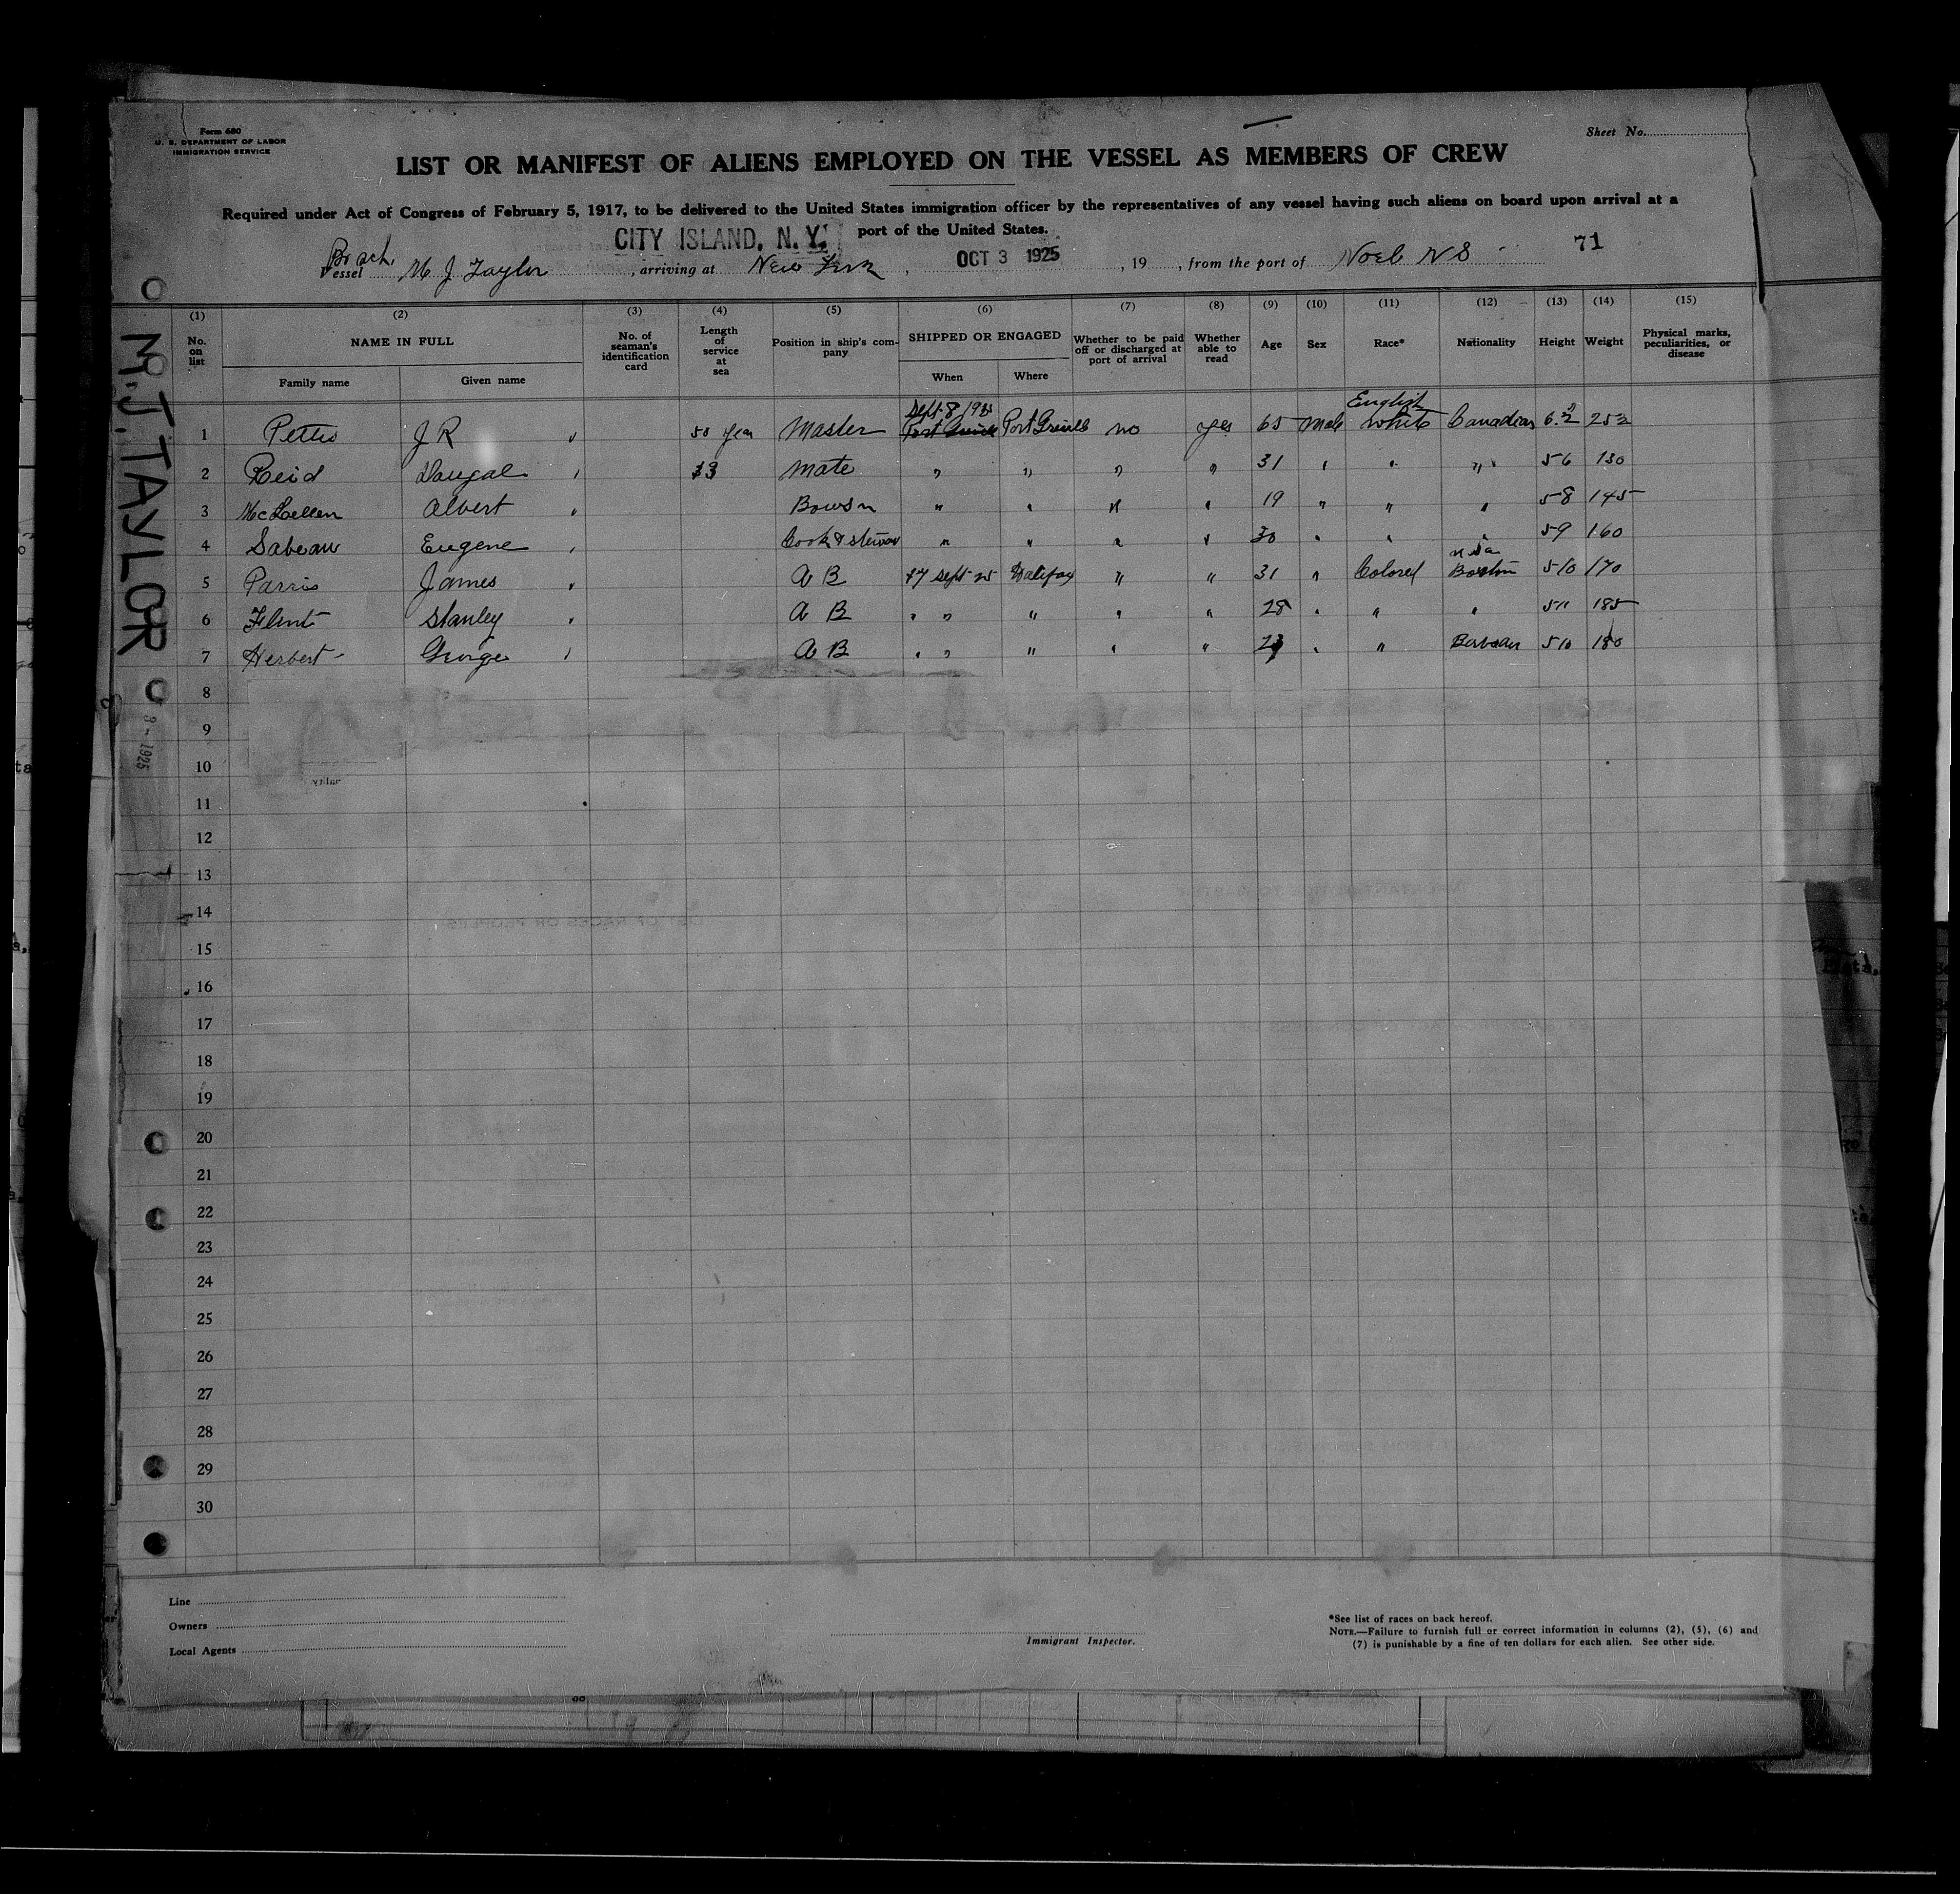 Form 680
U. S. DEPARTMENT OF LABOR
IMMIGRATION SERVICE
Sheet No.
LIST OR MANIFEST OF ALIENS EMPLOYED ON THE VESSEL AS MEMBERS OF CREW
Required under Act of Congress of February 5, 1917, to be delivered to the United States immigration officer by the representatives of any vessel having such aliens on board upon arrival at a
CITY ISLAND, N. Y. port of the United States.
Vessel M J Taylor, arriving at New York, OCT 3 1925, 19, from the port of Noel NS 71
M.J. TAYLOR
3 - 1925
(1) (2) (3) (4) (5) (6) (7) (8) (9) (10) (11) (12) (13) (14) (15)
No. on list NAME IN FULL No. of seaman's identification card Length of service at sea Position in ship's company SHIPPED OR ENGAGED Whether to be paid off or discharged at port of arrival Whether able to read Age Sex Race* Nationality Height Weight Physical marks, peculiarities, or disease
Family name Given name When Where
Sept 8 1925 English
1 Pettis J R 50 year Master Port Greville no yes 65 Male White Canadian 6.2 252
2 Reid Dougal 13 Mate " " " " 31 " " " 5 6 130
3 McLellen Albert Bowsn " " " " 19 " " " 5-8 145
4 Sabean Eugene Cook & steward " " " " 30 " " " 5-9 160
5 Parris James A B 17 Sept 25 Halifax " " 31 " Colored Boston 5-10 170
6 Flint Stanley A B " " " " " 28 " " " 5-11 185
7 Herbert George A B " " " " " " " 5 10 180
8
9
10
11
12
13
14
15
16
17
18
19
20
21
22
23
24
25
26
27
28
29
30
Line
Owners
Local Agents
Immigrant Inspector.
*See list of races on back hereof.
NOTE.—Failure to furnish full or correct information in columns (2), (5), (6) and
(7) is punishable by a fine of ten dollars for each alien. See other side.